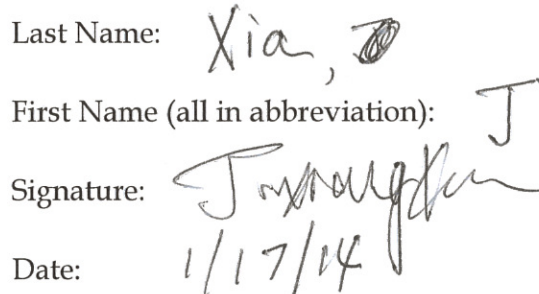 Last Name: Xia,
First Name (all in abbreviation): J
Signature:
Date: 1/17/14